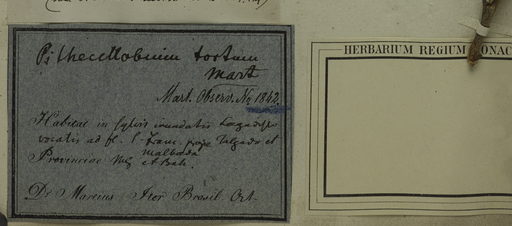 Pithecollobium tortum
Mart
Mart. Observ. No 1842.
Habitat in sylvis inundatis
vocatis ad fl. S. Franc. prope Salgado et
Malhada
Provinciae et Bah.
Dr Martius Iter Brasil. Oct.
HERBARIUM REGIUM MONAC